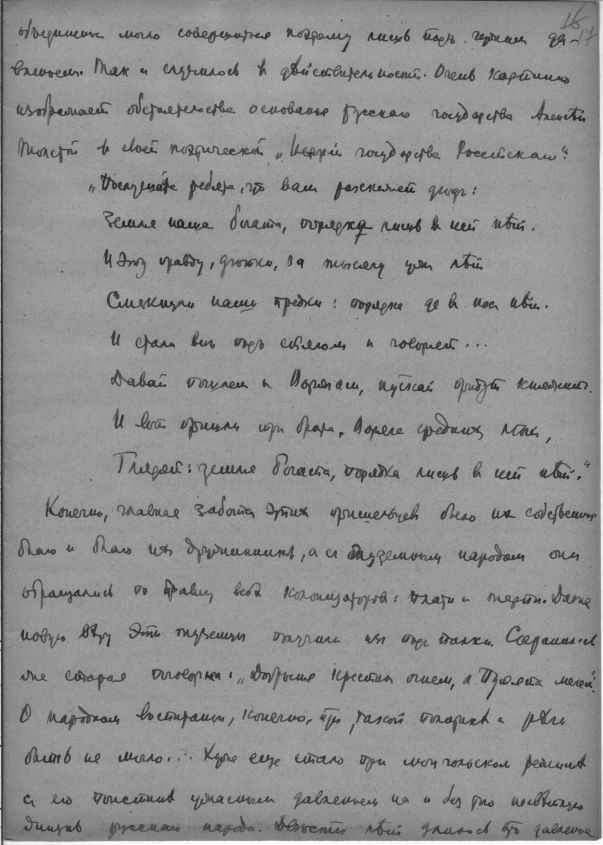 16
17
объединение могло совершиться поэтому лишь подъ чужимъ да-
вленьемъ. Так и случилось в дѣйствительности. Очень картинно
изображает обстоятельства основанья Русскаго государства Алексѣй
Толстой в своей поэтической „Исторіи государства Россійскаго":
„Послушайте ребята, что вам разскажет дѣдъ:
Земля наша богата, порядка лишь в ней нѣт.
И эту правду, дѣтки, за тысячу ужъ лѣт
Смекнули наши предки: порядка де в нас нѣт.
И стали все подъ стягом и говорят...
Давай пошлем к Варягам, пускай придут княжить.
И вот пришли три брата, Варяги средних лѣт,
Глядят: земля богата, порядка лишь в ней нѣт."
Конечно, главная забота этих пришельцев было их собственное
благо и благо их дружинников, а с туземным народом они
обращались по правилу всѣх колонизаторов: плати и терпи. Даже
новую вѣру эти туземцы получили из подъ палки. Сохранилась
же старая поговорка: „Добрыня крестил огнем, а Путята мечем".
О народном воспитании, конечно, при такой политикѣ и рѣчи
быть не могло... Хуже еще стало при монгольском режимѣ
с его поистинѣ ужасным давленьем на и без того несчастную
душу русскаго народа. Двѣсти лѣт длилось это давленье